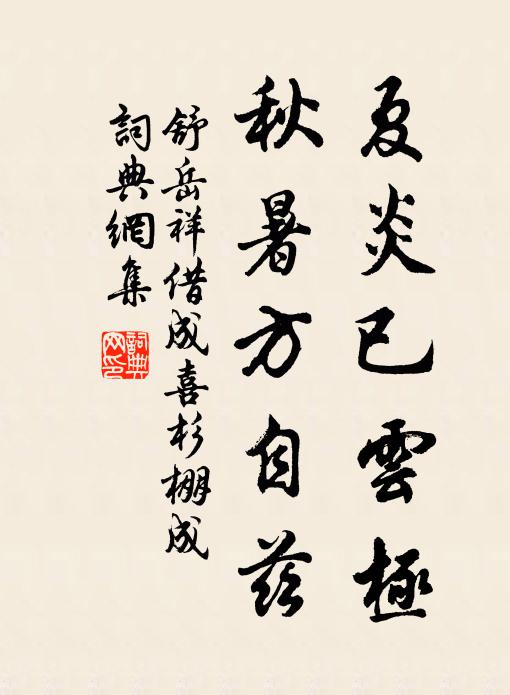 夏炎已雲極
秋暑方自茲
舒岳祥借成喜杉棚成
詞典網集
詞典網印